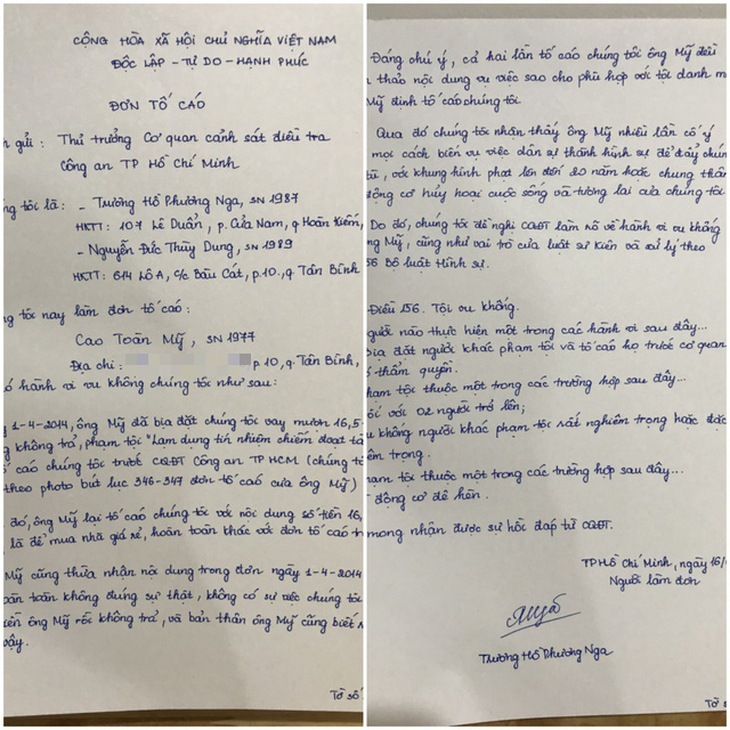 CỘNG HÒA XÃ HỘI CHỦ NGHĨA VIỆT NAM
ĐỘC LẬP - TỰ DO - HẠNH PHÚC
ĐƠN TỐ CÁO
gửi : Thủ trưởng Cơ quan cảnh sát điều tra
Công an TP Hồ Chí Minh
tôi là : - Trương Hồ Phương Nga, SN 1987
HKTT: 107 Lê Duẩn, p. Cửa Nam, q Hoàn Kiếm,
- Nguyễn Đức Thùy Dung, SN 1989
HKTT: 614 Lô A, C/c Bàu Cát, p.10., q. Tân Bình
tôi nay làm đơn tố cáo :
Cao Toàn Mỹ, SN 1977
Địa chỉ : p 10, q Tân Bình,
hành vi vu khống chúng tôi như sau :
1-4-2014, ông Mỹ đã bịa đặt chúng tôi vay mượn 16,5
không trả, phạm tội "Lạm dụng tín nhiệm chiếm đoạt
cáo chúng tôi trước CQĐT Công an TP HCM (chúng
theo photo bút lục 346-347 đơn tố cáo của ông Mỹ)
đó, ông Mỹ lại tố cáo chúng tôi với nội dung số tiền 16,
là để mua nhà giá rẻ, hoàn toàn khác với đơn tố cáo
Mỹ cũng thừa nhận nội dung trong đơn ngày 1-4-2014
toàn không đúng sự thật, không có sự việc chúng tôi
tiền ông Mỹ rồi không trả, và bản thân ông Mỹ cũng biết
vậy.
Tờ số
Đáng chú ý, cả hai lần tố cáo chúng tôi ông Mỹ đều
thảo nội dung vụ việc sao cho phù hợp với tội danh
Mỹ định tố cáo chúng tôi.
Qua đó chúng tôi nhận thấy ông Mỹ nhiều lần cố ý
mọi cách biến vụ việc dân sự thành hình sự để đẩy
tù, với khung hình phạt lên đến 20 năm hoặc chung thân
động cơ hủy hoại cuộc sống và tương lai của chúng tôi
Do đó, chúng tôi đề nghị CQĐT làm rõ về hành vi vu khống
Mỹ, cũng như vai trò của luật sư Kiên và xử lý theo
156 Bộ luật Hình sự.
Điều 156. Tội vu khống.
Người nào thực hiện một trong các hành vi sau đây...
bịa đặt người khác phạm tội và tố cáo họ trước cơ quan
thẩm quyền.
Phạm tội thuộc một trong các trường hợp sau đây...
với 02 người trở lên;
khống người khác phạm tội rất nghiêm trọng hoặc đặc
trọng.
Phạm tội thuộc một trong các trường hợp sau đây...
động cơ đê hèn.
mong nhận được sự hồi đáp từ CQĐT.
TP Hồ Chí Minh, ngày 16/
Người làm đơn
Trương Hồ Phương Nga
Tờ